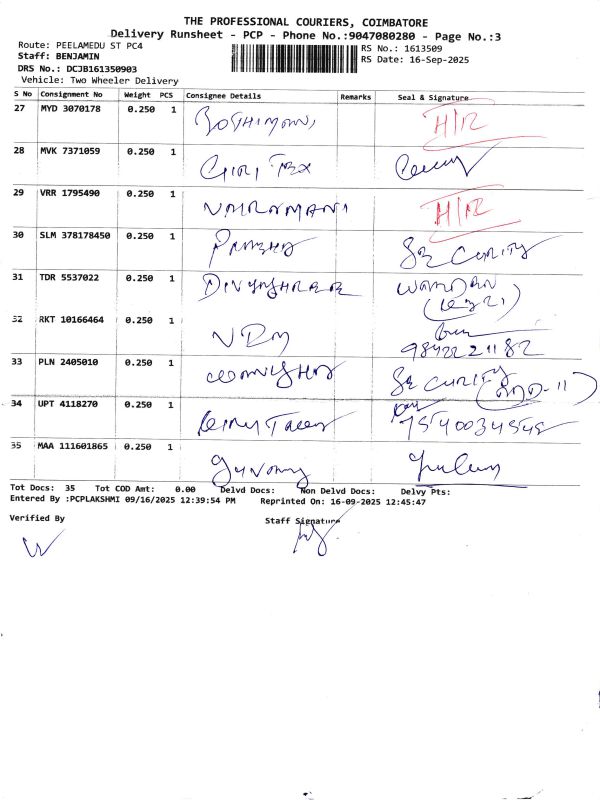 THE PROFESSIONAL COURIERS, COIMBATORE
Delivery Runsheet - PCP - Phone No.:9047080280 - Page No.:3
Route: PEELAMEDU ST PC4
RS No.: 1613509
Staff: BENJAMIN
RS Date: 16-Sep-2025
DRS No.: DCJB161350903
Vehicle: Two Wheeler Delivery
S No Consignment No Weight PCS Consignee Details Remarks Seal & Signature
27 MYD 3070178 0.250 1 H/R
28 MVK 7371059 0.250 1 GIRI TEX
29 VRR 1795490 0.250 1 H/R
30 SLM 378178450 0.250 1 SECURITY
31 TDR 5537022 0.250 1 DIVYASHREE WARDEN
32 RKT 10166464 0.250 1
9842221182
33 PLN 2405010 0.250 1 SECURITY
34 UPT 4118270 0.250 1
35 MAA 111601865 0.250 1
Tot Docs: 35 Tot COD Amt: 0.00 Delvd Docs: Non Delvd Docs: Delvy Pts:
Entered By :PCPLAKSHMI 09/16/2025 12:39:54 PM Reprinted On: 16-09-2025 12:45:47
Verified By Staff Signature